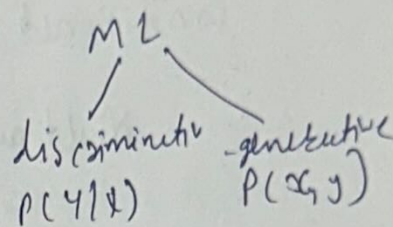 ML
discriminativ generative
P(y|x) P(x,y)